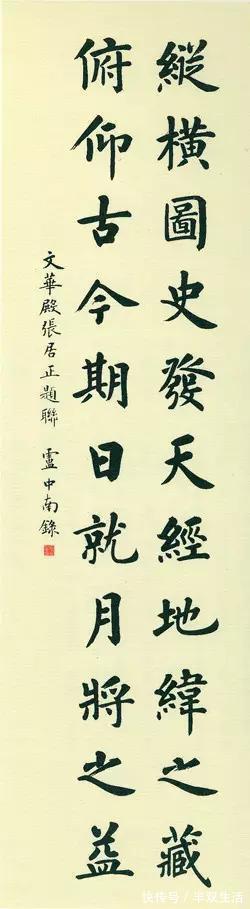 縱橫圖史發天經地緯之藏
俯仰古今期日就月將之益
文華殿張居正題聯 盧中南錄
快传号／半双生活